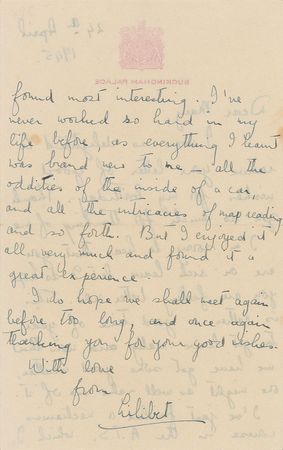 24th April
1945.
BUCKINGHAM PALACE
found most interesting. I've
never worked so hard in my
life before, as everything I learnt
was brand new to me - all the
oddities of the inside of a car,
and all the intricacies of map reading
and so forth. But I enjoyed it
all very much and found it a
great experience.
I do hope we shall meet again
before too long, and once again
thanking you for your good wishes.
With love
from
Lilibet